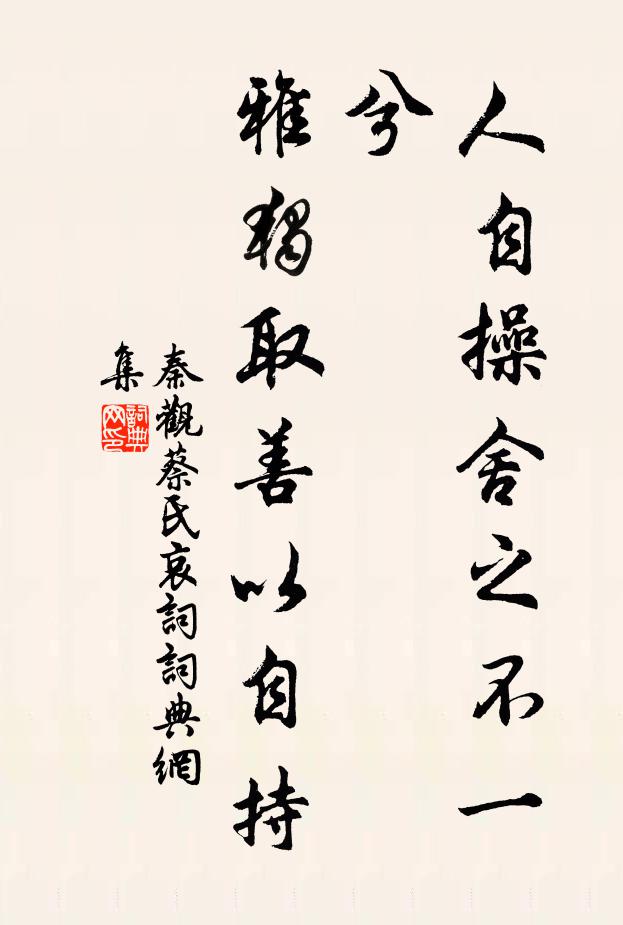 人自操舍之不一
兮
雅獨取善以自持
秦觀蔡氏哀詞詞典網
集
詞典网印